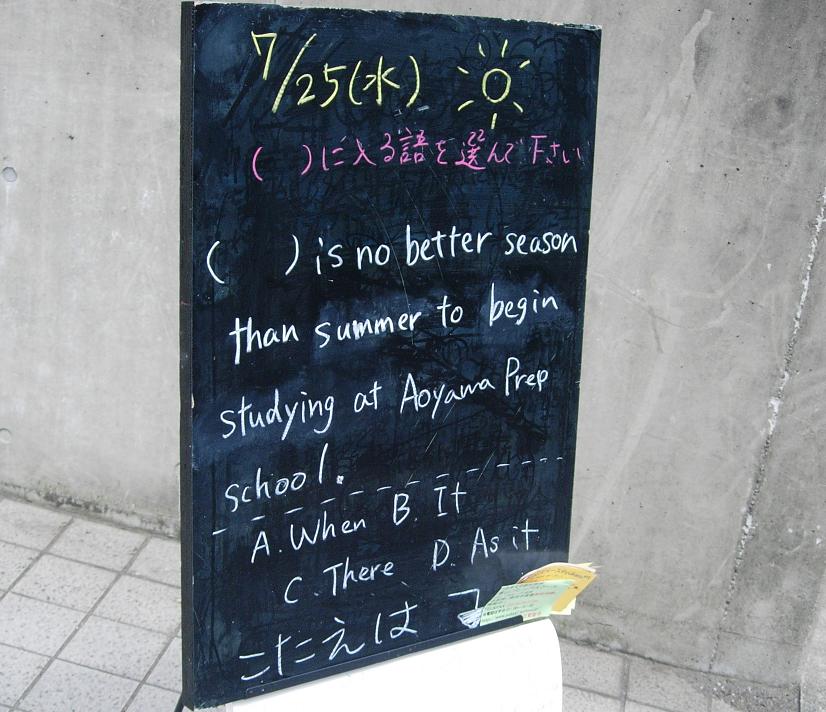 7/25(水)
( )に入る語を選んで下さい
( ) is no better season
than summer to begin
studying at Aoyama Prep
school.
A. When B. It
C. There D. As it
こたえは